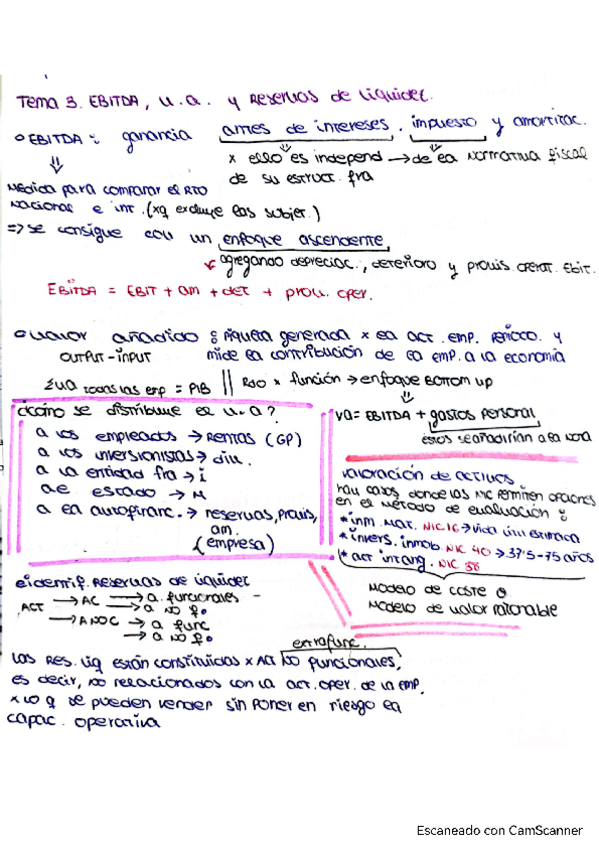 Tema 3. EBITDA, V.a. y Reservas de liquidez.
EBITDA: ganancia antes de intereses, impuesto y amortizac.
x ello es independ → de ea normativa fiscal
de su estruct. fra
Medida para comparar el RTO
nacional e int. (xq excluye las subjet.)
=> se consigue con un enfoque ascendente
agregando depreciac., deterioro y provis. operat. EBIT.
EBITDA = EBIT + am + det + prov. oper.
valor añadido: riqueza generada x ea act. emp. periodo. y
OUTPUT - INPUT mide ea contribución de ea emp. a la economía
ΣVA todas las emp = PIB || Rdo x función → enfoque Bottom up
¿cómo se distribuye el V.a?
a los empleados → Rentas (GP)
a los inversionistas → div.
a la entidad fra → i
ae estado → M
a ea autofinanc. → reservas, provis,
am.
(empresa)
va = EBITDA + gastos personal
estos se añadirían a ea nota
valoración de activos
hay casos donde las NIC permiten opciones
en el método de evaluación:
* inm. mat. NIC 16 → vida útil estimada
* invers. inmob NIC 40 → 37'5-75 años
* act intang. NIC 38
Modelo de coste o
Modelo de valor razonable
identif. Reservas de liquidez
ACT → AC → a. funcionales -
→ a no fo
→ ANOC → a func
→ a no fo
extrafunc.
Las Res. liq están constituidas x ACT NO funcionales,
es decir, no relacionados con la act. oper. de la emp.
x lo q se pueden vender sin poner en riesgo ea
capac. operativa
Escaneado con CamScanner